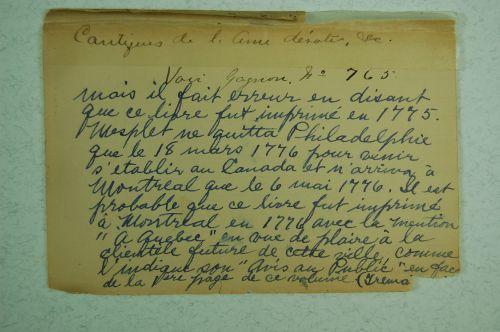 Cantiques de l'ame dévote, &c.
Voir Gagnon, No 765
mais il fait erreur en disant
que ce livre fut imprimé en 1775.
Mesplet ne quitta Philadelphie
que le 18 mars 1776 pour venir
s'etablir au Canada et n'arriva à
Montréal que le 6 mai 1776. Il est
probable que ce livre fut imprimé
à Montréal en 1776 avec la mention
"A Quebec" en vue de plaire à la
clientèle future de cette ville, comme
l'indique son "Avis au Public" en fac
de la 1ere page de ce volume